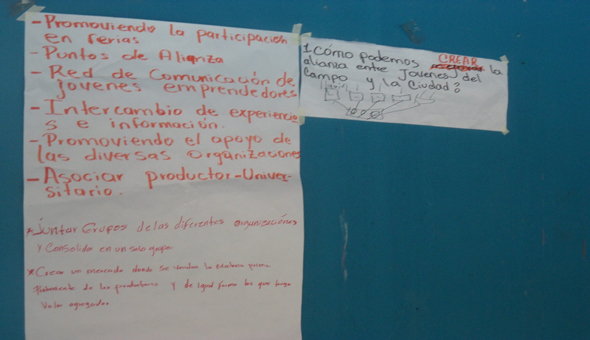 - Promoviendo la participación
en ferias
- Puntos de Alianza
- Red de Comunicación de
jovenes emprendedores
- Intercambio de experiencia
s e información.
- Promoviendo el apoyo de
las diversas organizaciones
- Asociar productor-Univer-
sitario.
* Juntar Grupos de las diferentes organizaciónes
y Consolida en un solo grupo
* Crear un mercado donde se vendan la
de los productores y de igual forma los que tenga
Valor agregados
1 cómo podemos CREAR la
alianza entre Jovenes del
Campo y la Ciudad?